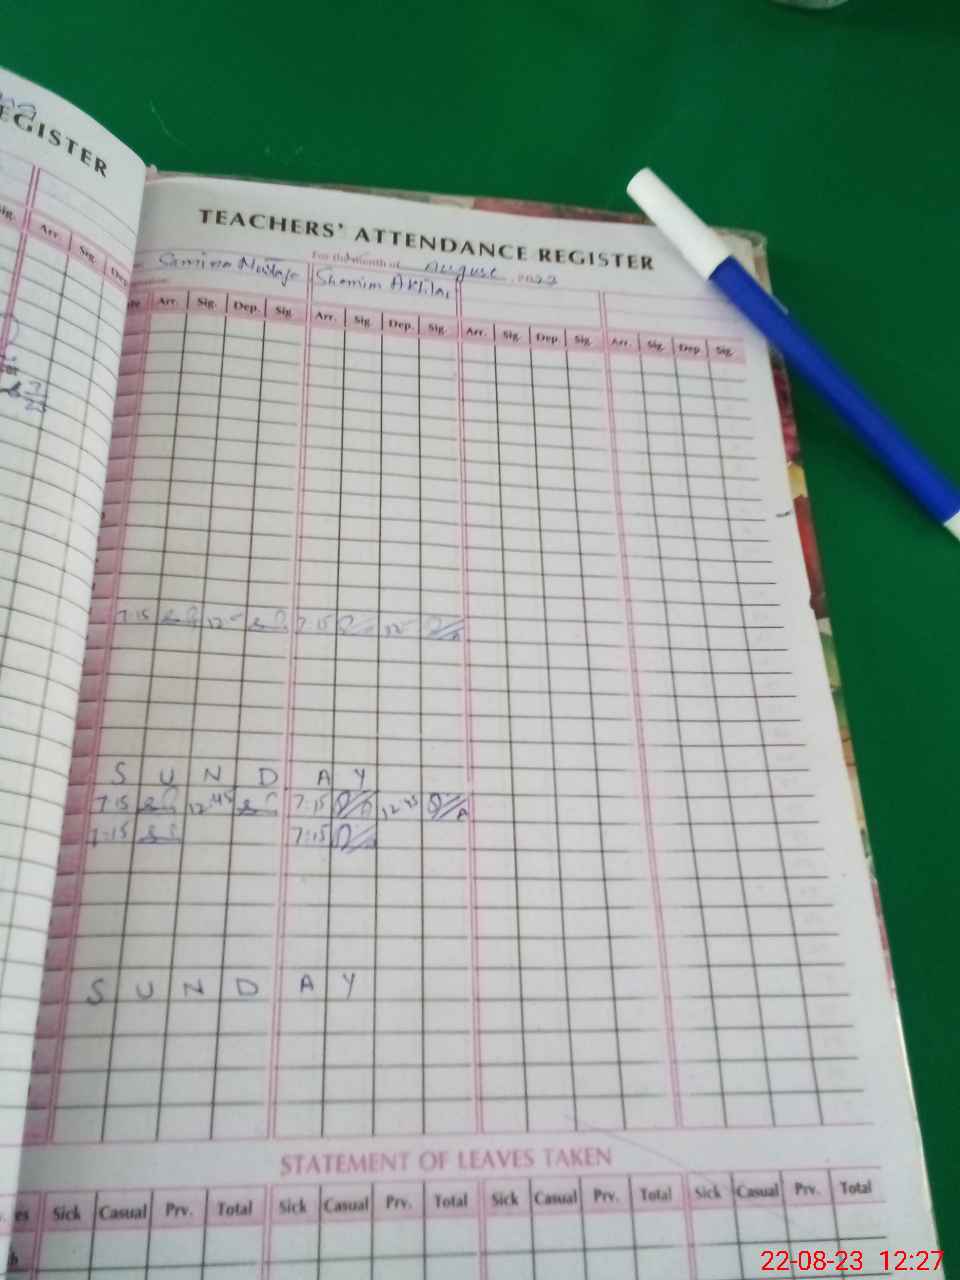 EGISTER
Sig. Arr. Sig. Dep
TEACHERS' ATTENDANCE REGISTER
For the month of August 2023
Samina Shamim Akhtar
Arr. Sig. Dep. Sig. Arr. Sig. Dep. Sig. Arr. Sig. Dep. Sig. Arr. Sig. Dep. Sig.
7:15 12 7:15 12
S U N D A Y
7:15 12:45 7:15 12:45
7:15 7:15
S U N D A Y
STATEMENT OF LEAVES TAKEN
es Sick Casual Prv. Total Sick Casual Prv. Total Sick Casual Prv. Total Sick Casual Prv. Total
22-08-23 12:27